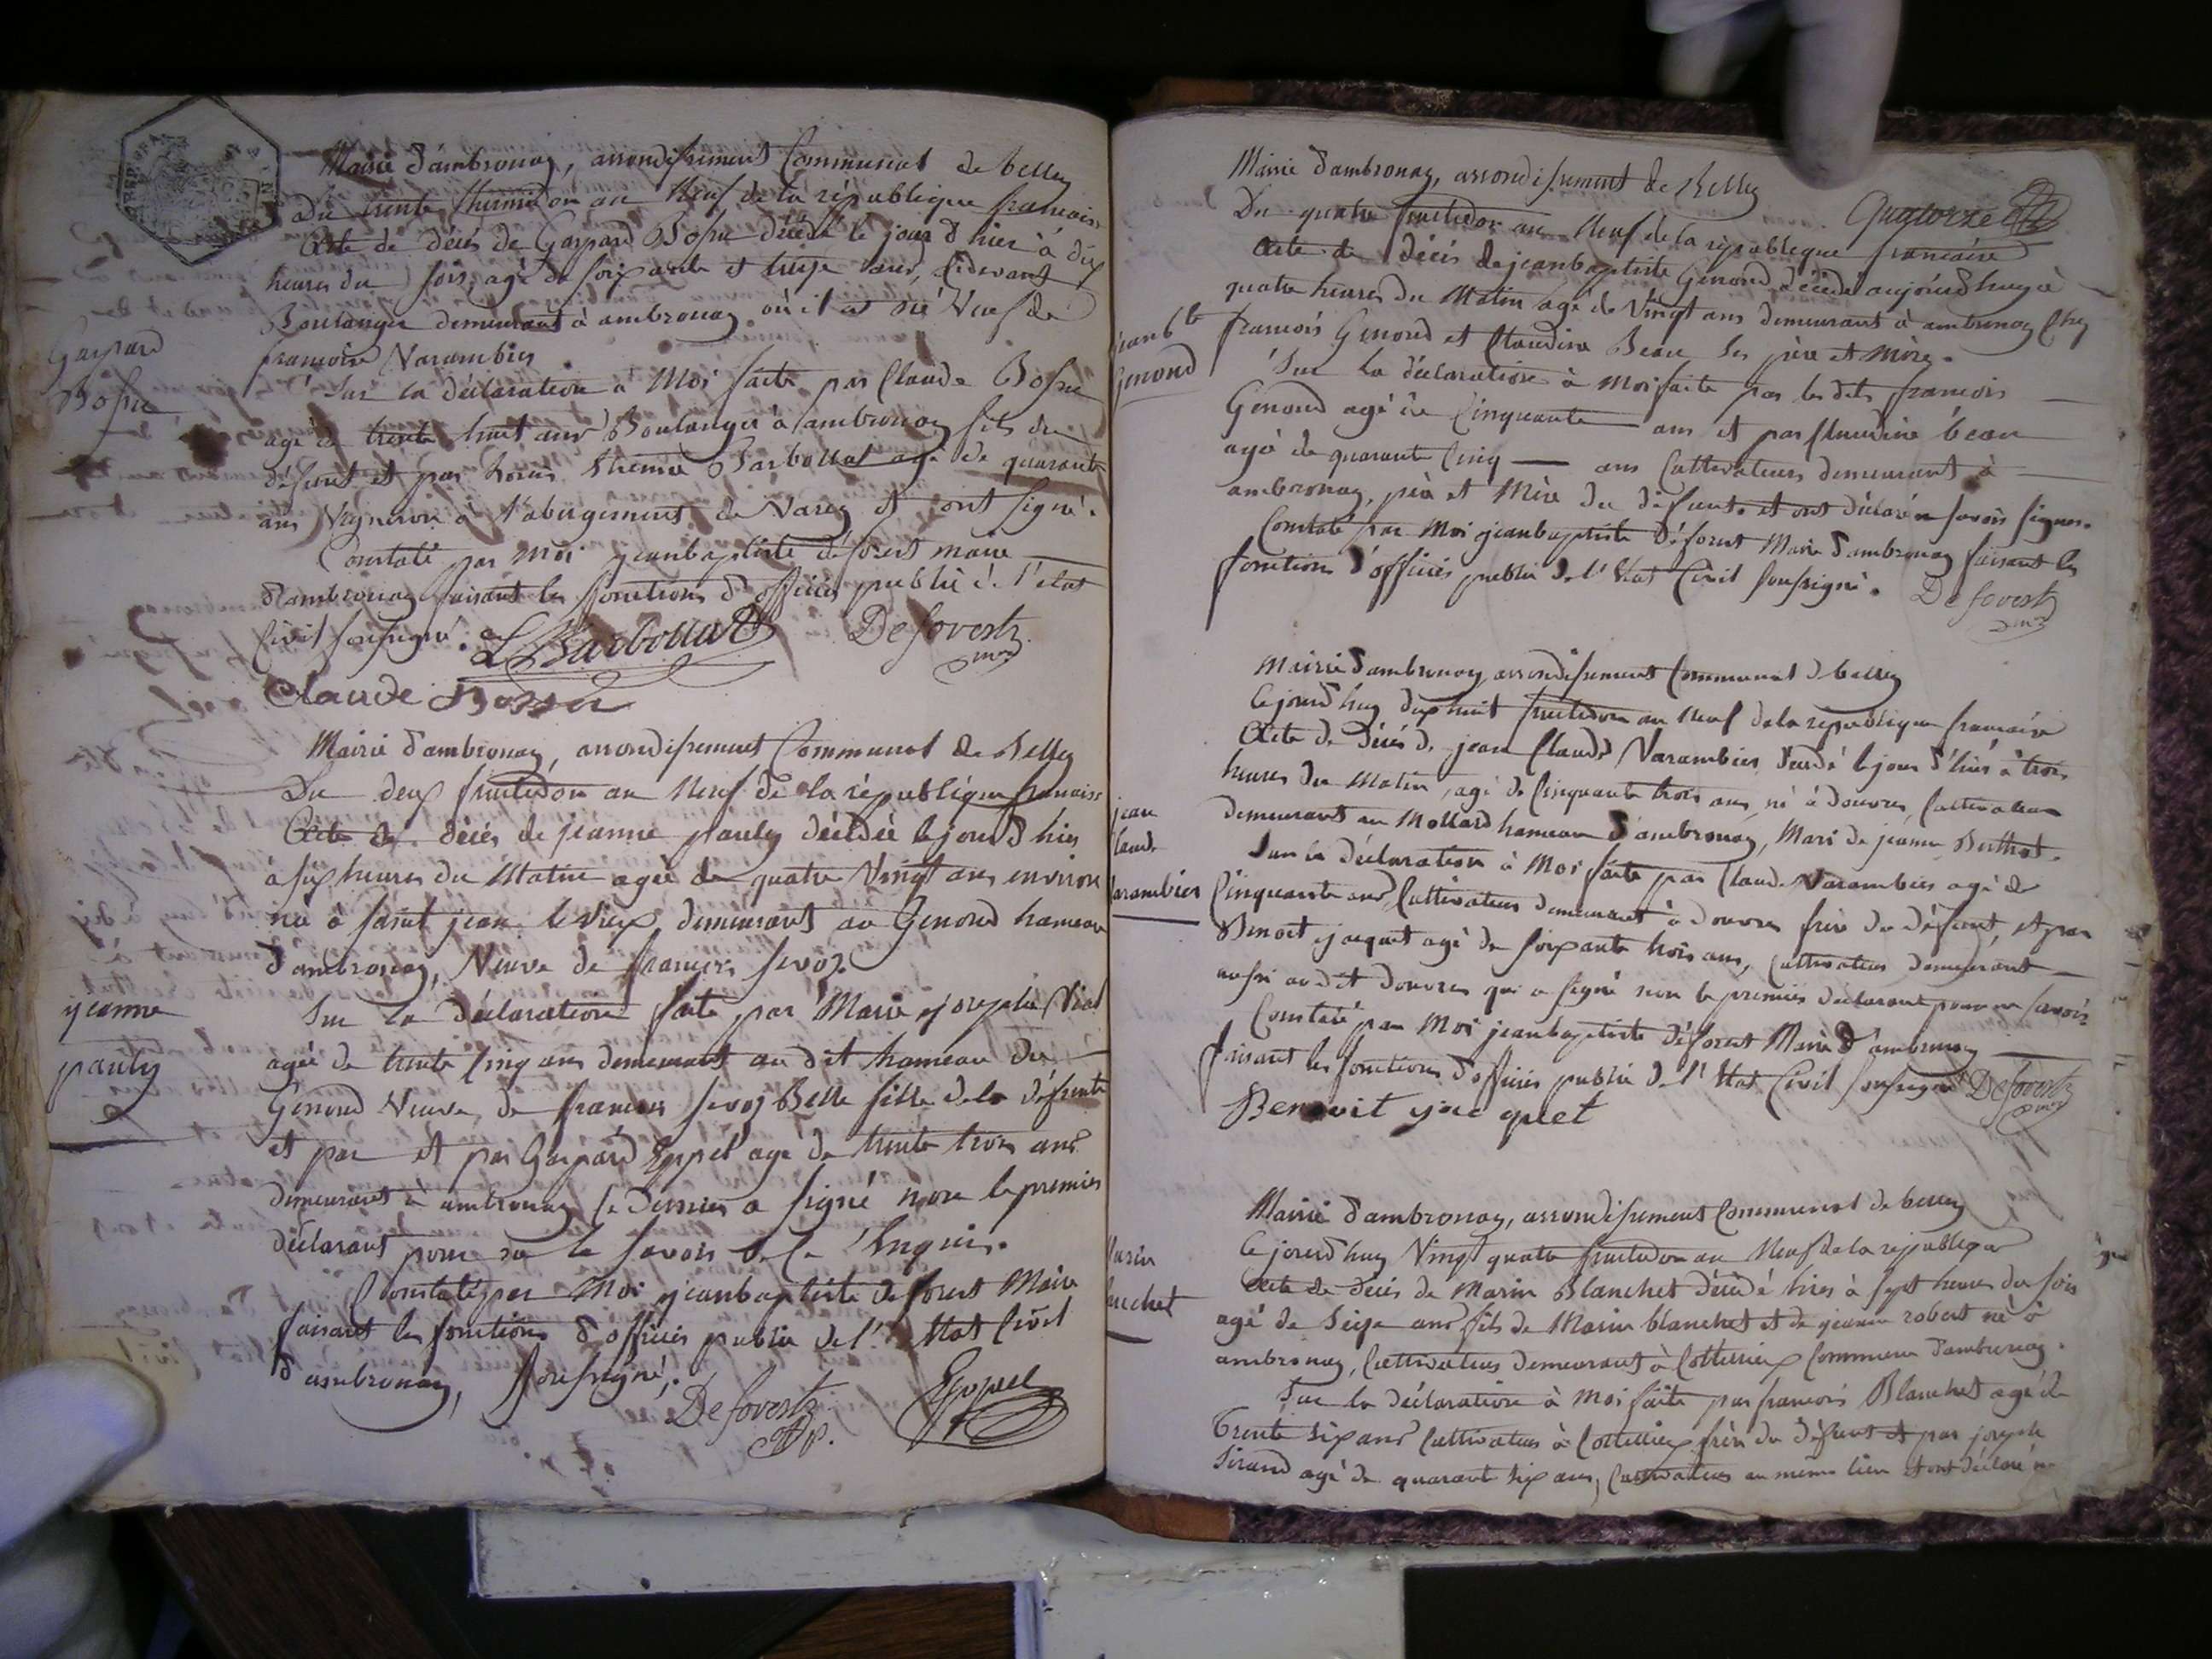 Mairie d'ambronay, arrondissement Communal de belley
Du trente thermidor an Neuf de la république francaise
Acte de décès de Gaspard Bossu décédé le jour d'hier à dix
heures du soir, agé de soixante et treize ans, cidevant
Boulanger demeurant à ambronay où il est né Veuf de
francoise Varambier
Gaspard
Bossu
Sur la déclaration à Moi faite par Claude Bossu
agé de trente huit ans Boulanger à ambronay fils du
défunt et par Barbollat agé de quarante
ans Vigneron à l'abergement de Varey et ont signé.
Constaté par moi jeanbaptiste déforest maire
d'ambronay faisant les fonctions d'officier public de l'état
Civil soussigné.
L Barbollat Deforest mre
Claude Bossu
Mairie d'ambronay, arrondissement Communal de Belley
Du deux fructidor an Neuf de la république francaise
Acte de décès de jeanne pauly décédée le jour d'hier
à six heures du Matin agée de quatre Vingt ans environ
né à saint jean le vieux demeurant au Genoud hameau
d'ambronay, Veuve de francois Sevoz
jeanne
pauly
Sur la déclaration faite par Marie josephe Vial
agée de trente cinq ans demeurant au dit hameau du
Genoud Veuve de francois Sevoz Belle fille de la défunte
et par et par Gaspard Eppel agé de trente trois ans
demeurant à ambronay le Dernier a signé non le premier
déclarant pour ne le savoir de ce Enquis.
Constaté par Moi jeanbaptiste deforest Maire
faisant les fonctions d'officier public de l'Etat Civil
d'ambronay, soussigné.
Deforest Eppel
Quatorze
Mairie d'ambronay, arrondissement de Belley
Du quatre fructidor an Neuf de la république francaise
Acte de décès de jeanbaptiste Genoud décédé aujourd'huy à
quatre heures du Matin agé de Vingt ans demeurant à ambronay Chez
francois Genoud et Claudine Beau ses père et Mère.
jeanbte
Genoud
Sur la déclaration à Moi faite par les dits francois
Genoud agé de Cinquante ans et par Claudine beau
agée de quarante Cinq ans Cultivateurs demeurant à
ambronay, père et Mère du défunt et ont déclaré ne savoir signer.
Constaté par Moi jeanbaptiste déforest Maire d'ambronay faisant les
fonctions d'officier public de l'Etat Civil soussigné. Deforest mre
Mairie d'ambronay arrondissement Communal de belley
Cejourd'huy dix huit fructidor an Neuf de la republique francaise
Acte de décès de jean Claude Varambier décédé le jour d'hier à trois
heures du Matin, agé de Cinquante trois ans, né à douvres Cultivateur
demeurant au Mollard hameau d'ambronay, Mari de jeanne Berthet.
jean
Claude
Varambier
Sur la déclaration à Moi faite par Claude Varambier agé de
Cinquante ans, Cultivateur demeurant à douvres frère du défunt, et par
Benoit jacquet agé de soixante trois ans, Cultivateur demeurant
aussi au dit douvres qui a signé non le premier déclarant pour ne savoir
Constaté par Moi jeanbaptiste déforest Maire d'ambronay
faisant les fonctions d'officier public de l'Etat Civil soussigné Deforest mre
Benoit jac quet
Mairie d'ambronay, arrondissement Communal de belley
Cejourd'huy Vingt quatre fructidor an Neuf de la republique
Acte de décès de Marin Blanchet décédé hier à sept heures du soir
agé de Seize ans fils de Marin blanchet et de jeanne robert né à
ambronay, Cultivateur demeurant à Cottelieux Commune d'ambronay.
Sur la déclaration à Moi faite par francois Blanchet agé de
Trente six ans Cultivateur à Cottelieux frère du défunt et par joseph
Sirand agé de quarante six ans, Cultivateur au même lieu et ont déclaré ne